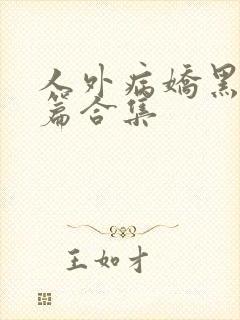 人外病娇黑
篇合集
王如才